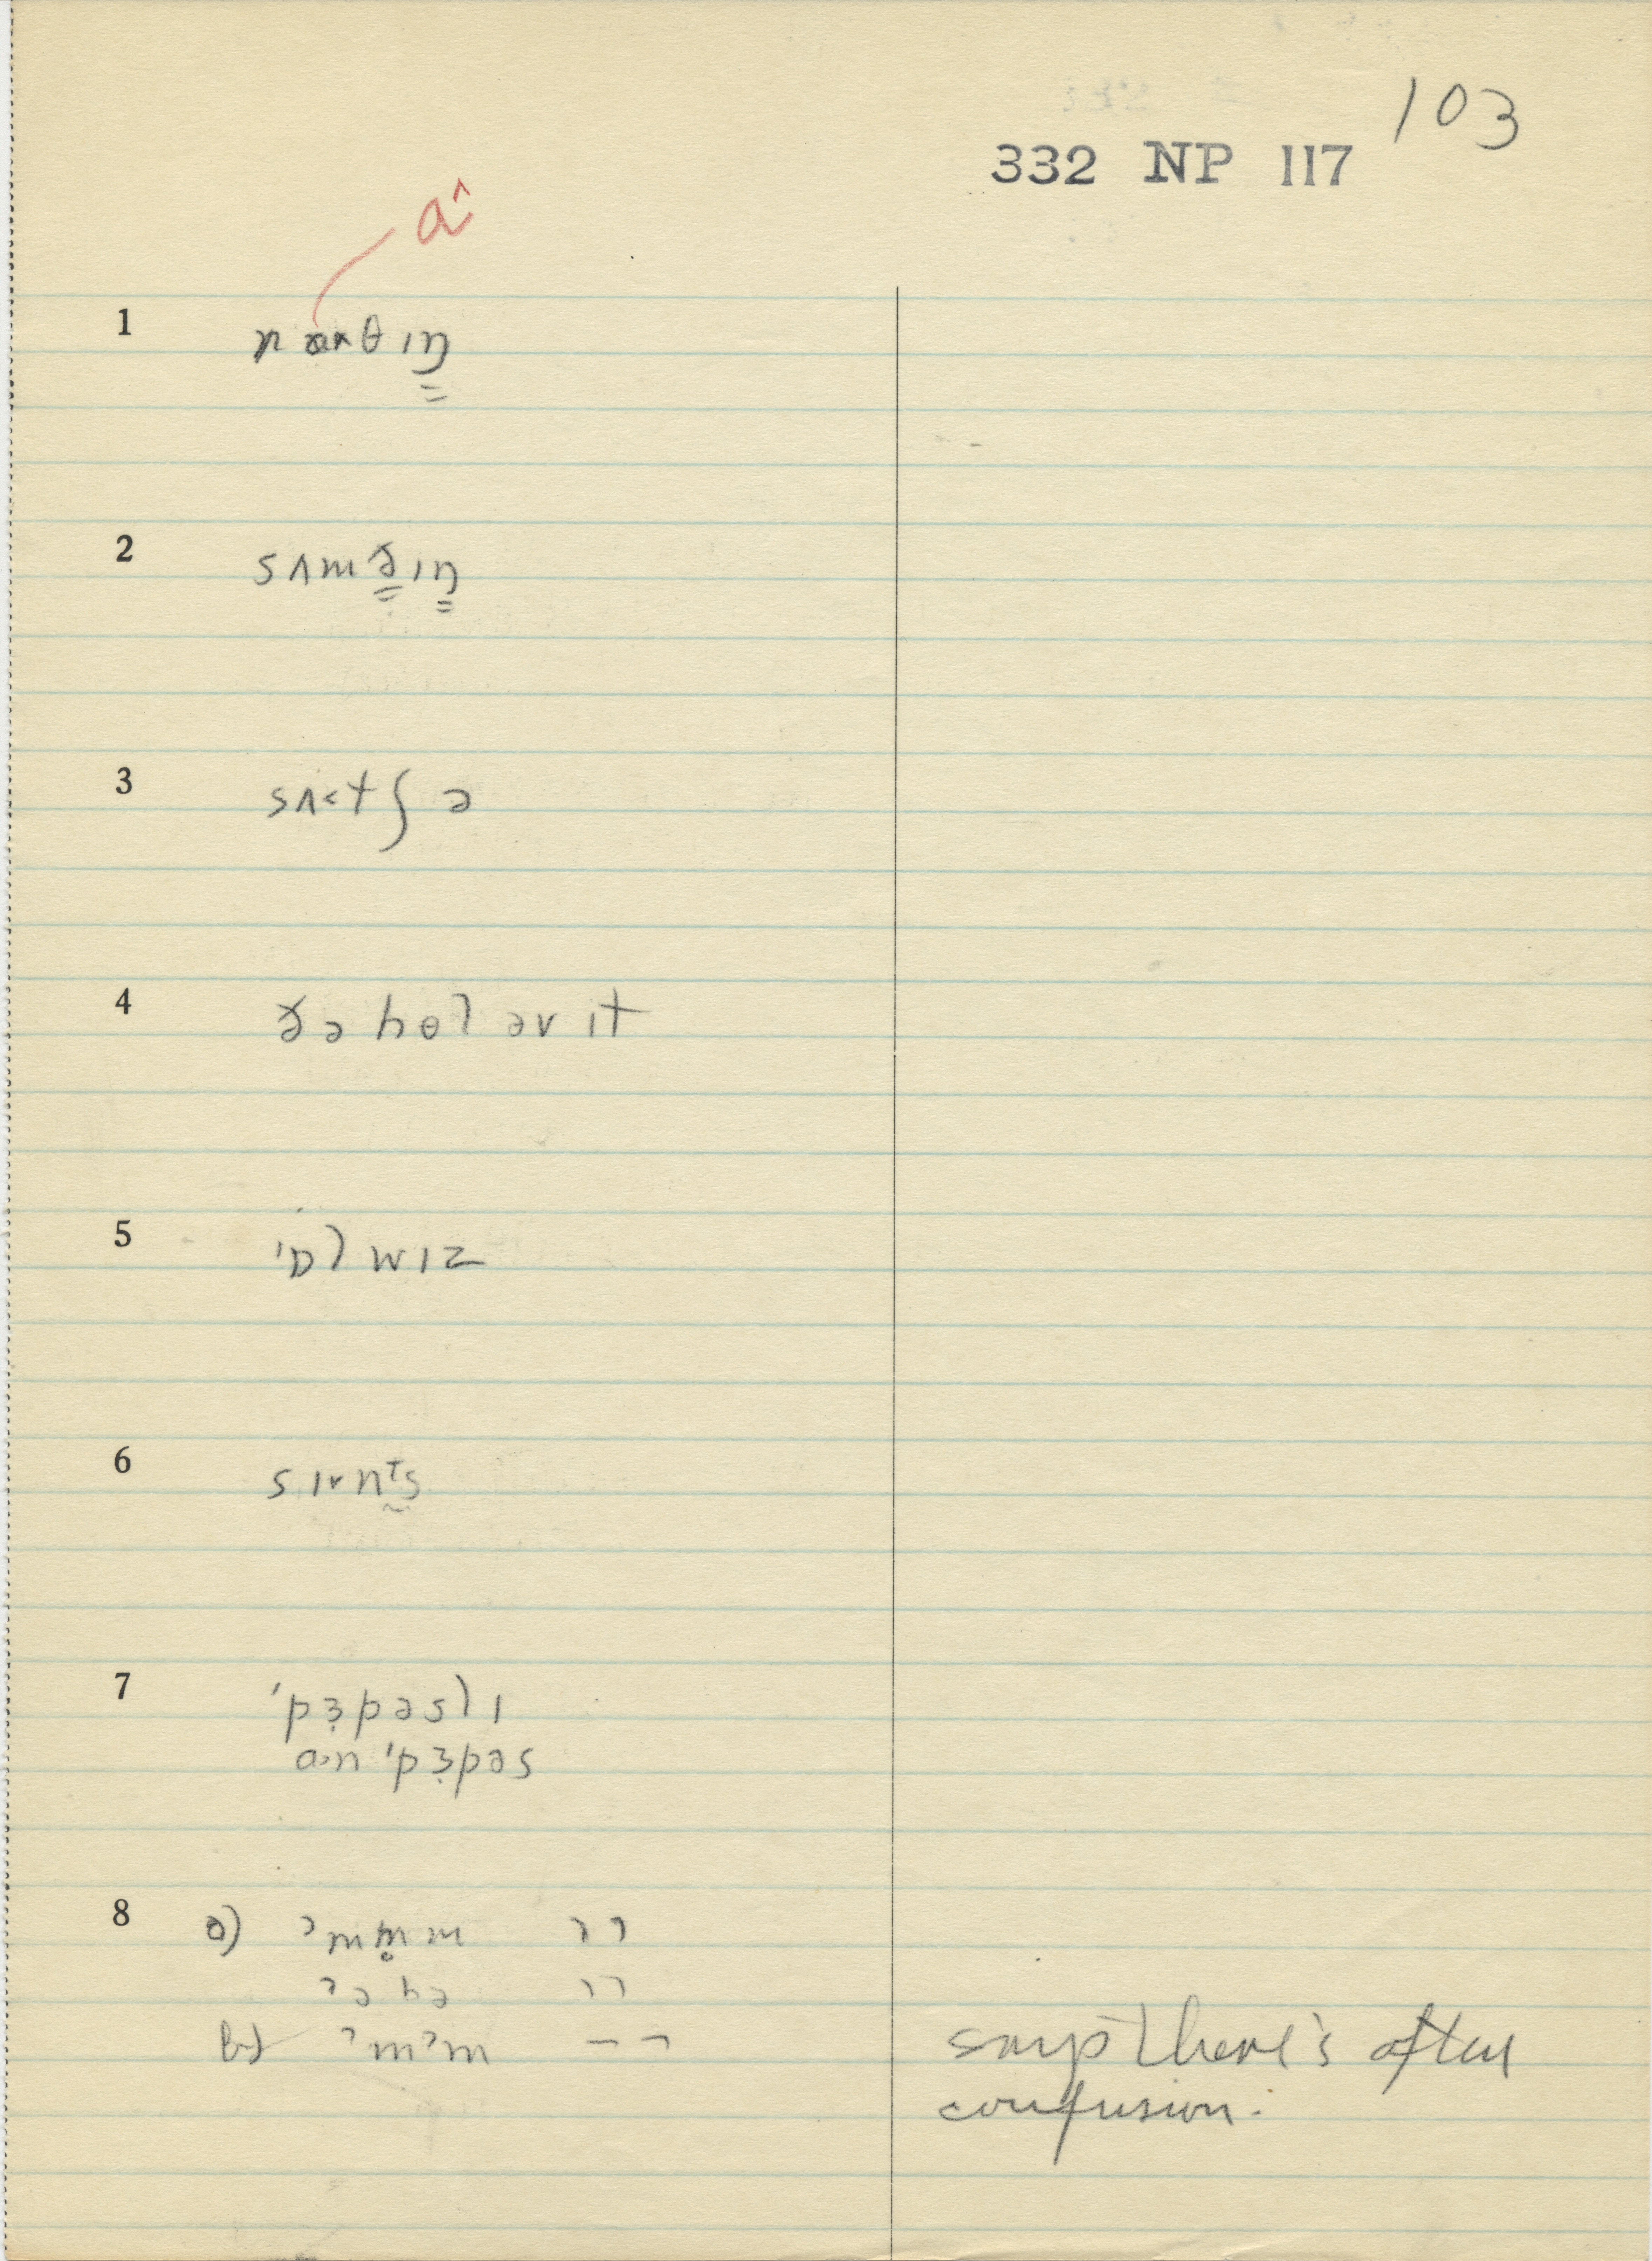 103
332 NP 117
a^
1 nɑ^θɪŋ
2 sʌmðɪŋ
3 sʌ<tʃ ə
4 ðə hol əv ɪt
5 'ɒlwɪz
6 sɪvnᵗs
7 'pɜpəslɪ
ɑ>n 'pɜpəs
8 a) ʔmm̥m ˥˥
ʔəhə ˥˥
b) ʔmʔm – ¬
says there's often
confusion.